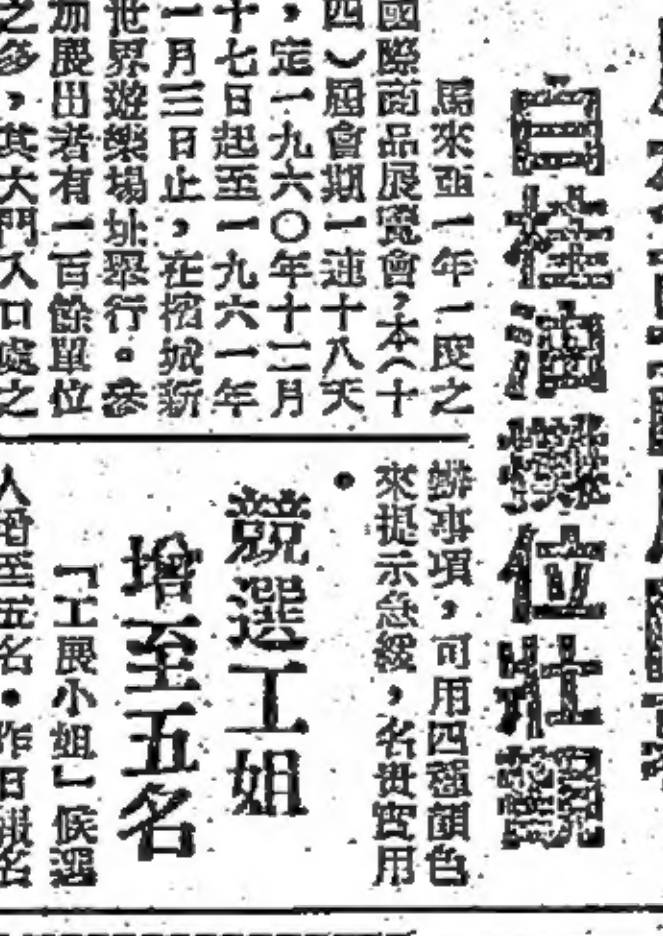 白桂油攤位壯觀
馬來亞一年一度之
國際商品展覽會，本（十
四）屆會期一連十八天
，定一九六〇年十二月
十七日起至一九六一年
一月三日止，在檳城新
世界遊樂場址舉行。參
加展出者有一百餘單位
之多，其大門入口處之
辦事項，可用四種顏色
來提示急緩，名貴實用
。
競選工姐
增至五名
「工展小姐」候選
人增至五名。昨日報名